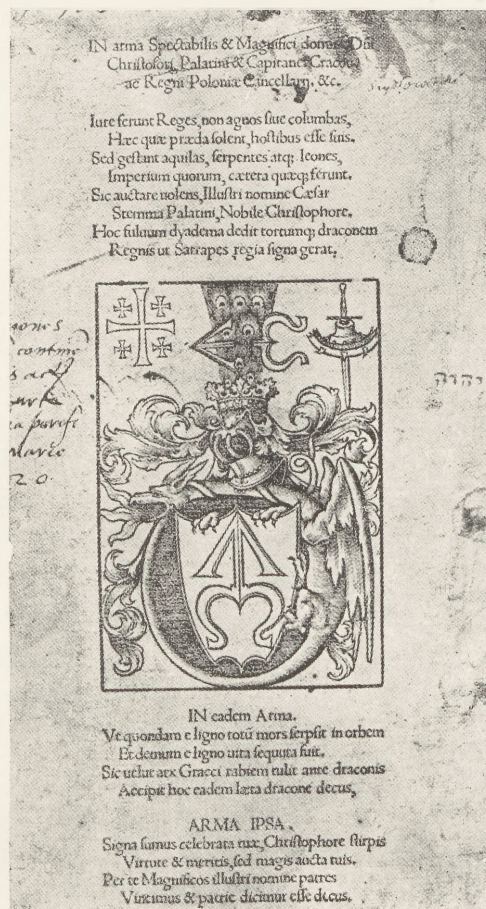 IN arma Spectabilis & Magnifici domini Dñi
Christofori, Palatini & Capitanei Cracoui
ac Regni Poloniæ Cancellarij. &c.
Iure ferunt Reges, non agnos siue columbas,
Hæc quæ præda solent, hostibus esse suis.
Sed gestant aquilas, serpentes atq; leones,
Imperium quorum, cætera quæq; ferunt.
Sic auctare uolens, Illustri nomine Cæsar
Stemma Palatini, Nobile Christophore.
Hoc fuluum dyadema dedit tortumq; draconem
Regnis ut Satrapes regia signa gerat.
יהוה
20.
IN eadem Arma.
Vt quondam e ligno totũ mors serpsit in orbem
Et demum e ligno uita sequuta fuit.
Sic uelut arx Gracci rabiem tulit ante draconis
Accipit hoc eadem læta dracone decus,
ARMA IPSA.
Signa sumus celebrata tuæ, Christophore stirpis
Virtute & meritis, sed magis aucta tuis.
Per te Magnificos illustri nomine patres
Vincimus & patrie dicimur esse decus.